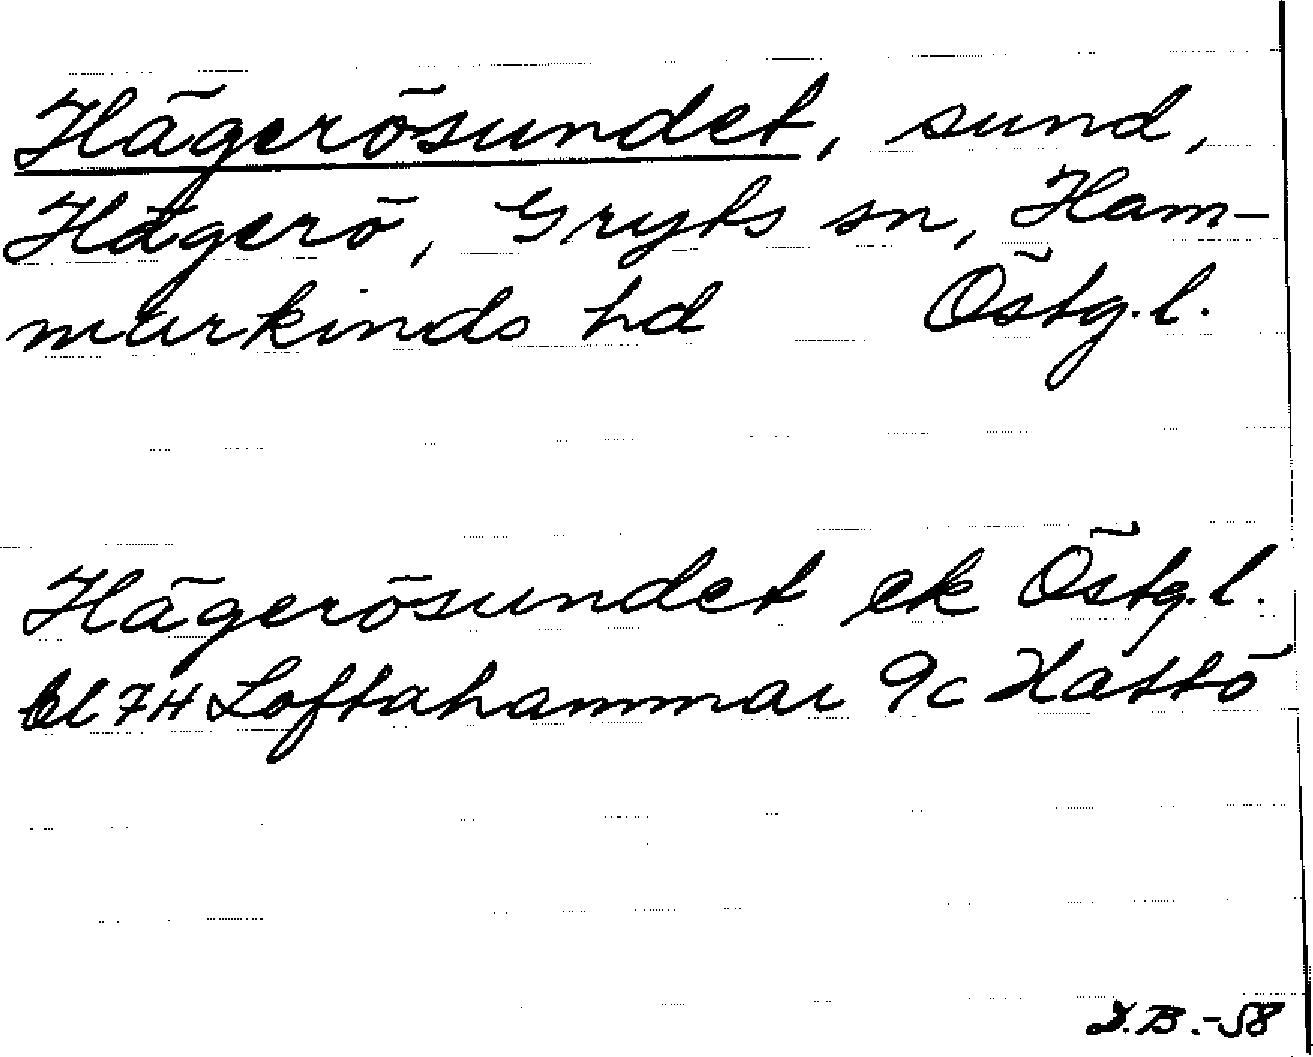 Hägerösundet, sund,
Hägerö, Gryts sn, Ham-
markinds hd Östg.l.
Hägerösundet ek Östg.l.
bl 7H Loftahammar 9c Kattö
D.B.-58